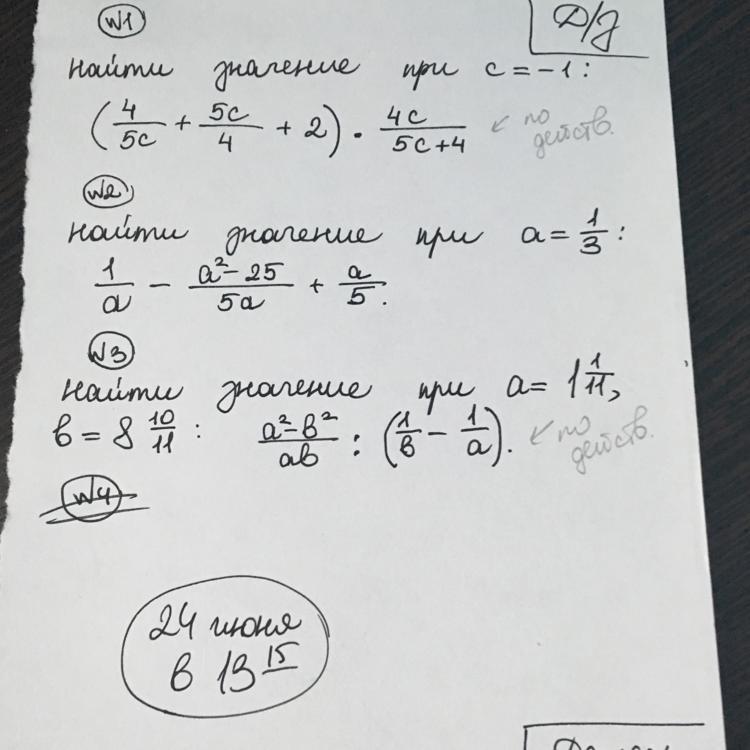 Д/З
№1
Найти значение при c = -1 :
(4/5c + 5c/4 + 2) · 4c/5c+4 ← по действ.
№2
Найти значение при a = 1/3 :
1/a − a²−25/5a + a/5.
№3
Найти значение при a = 1 1/11,
в = 8 10/11 : a²−в²/aв : (1/в − 1/a). ← по действ.
№4
24 июня
в 13 15